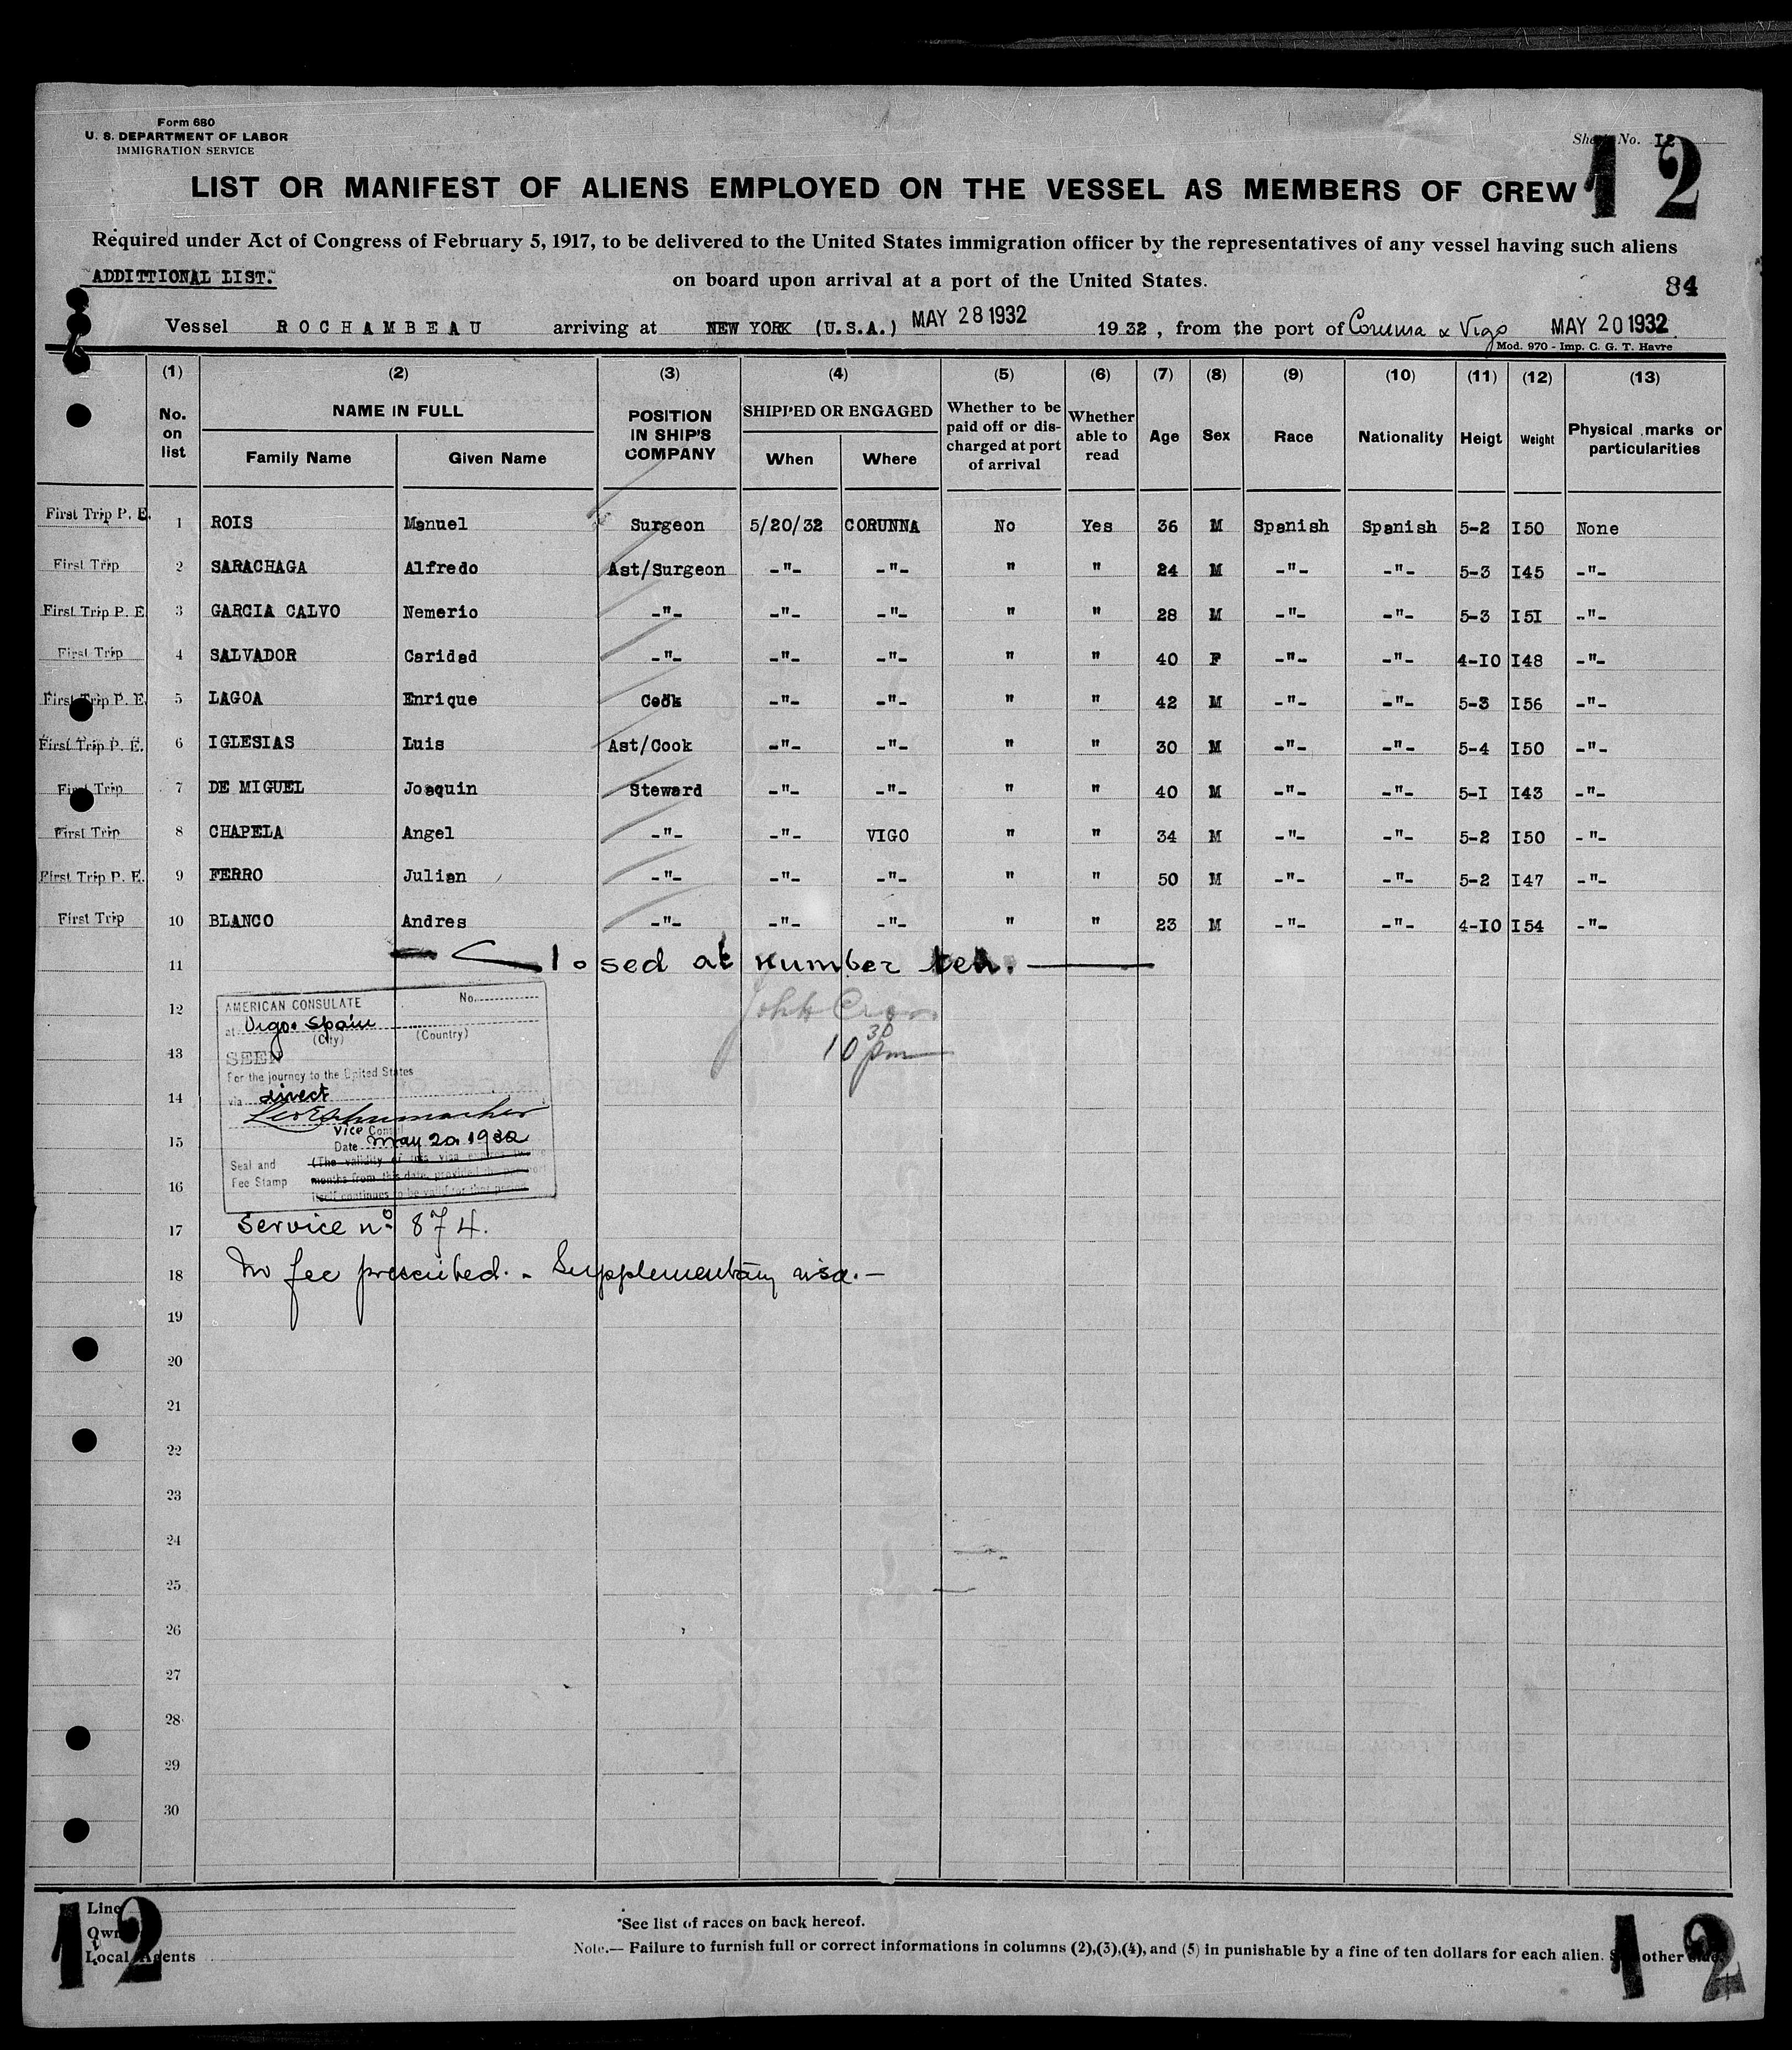 Form 680
U. S. DEPARTMENT OF LABOR
IMMIGRATION SERVICE
Sheet No. I2
12
LIST OR MANIFEST OF ALIENS EMPLOYED ON THE VESSEL AS MEMBERS OF CREW
Required under Act of Congress of February 5, 1917, to be delivered to the United States immigration officer by the representatives of any vessel having such aliens
"ADDITTIONAL LIST." on board upon arrival at a port of the United States.
84
Vessel ROCHAMBEAU arriving at NEW YORK (U.S.A.) MAY 28 1932 19 32, from the port of Corunna & Vigo MAY 20 1932
Mod. 970 - Imp. C. G. T. Havre
(1) (2) (3) (4) (5) (6) (7) (8) (9) (10) (11) (12) (13)
No. on list NAME IN FULL Family Name Given Name POSITION IN SHIP'S COMPANY SHIPPED OR ENGAGED When Where Whether to be paid off or discharged at port of arrival Whether able to read Age Sex Race Nationality Heigt Weight Physical marks or particularities
First Trip P. E. 1 ROIS Manuel Surgeon 5/20/32 CORUNNA No Yes 36 M Spanish Spanish 5-2 I50 None
First Trip 2 SARACHAGA Alfredo Ast/Surgeon -"- -"- " " 24 M -"- -"- 5-3 I45 -"-
First Trip P. E. 3 GARCIA CALVO Nemerio -"- -"- -"- " " 28 M -"- -"- 5-3 I5I -"-
First Trip 4 SALVADOR Caridad -"- -"- -"- " " 40 F -"- -"- 4-IO I48 -"-
First Trip P. E. 5 LAGOA Enrique Cook -"- -"- " " 42 M -"- -"- 5-3 I56 -"-
First Trip P. E. 6 IGLESIAS Luis Ast/Cook -"- -"- " " 30 M -"- -"- 5-4 I50 -"-
First Trip 7 DE MIGUEL Joaquin Steward -"- -"- " " 40 M -"- -"- 5-I I43 -"-
First Trip 8 CHAPELA Angel -"- -"- VIGO " " 34 M -"- -"- 5-2 I50 -"-
First Trip P. E. 9 FERRO Julian -"- -"- -"- " " 50 M -"- -"- 5-2 I47 -"-
First Trip 10 BLANCO Andres -"- -"- -"- " " 23 M -"- -"- 4-IO I54 -"-
11 Closed at number ten.
12 John
10 30 pm
AMERICAN CONSULATE No.
at Vigo. Spain
(City) (Country)
SEEN
13
For the journey to the United States
14
via direct
Vice Consul
15
Date May 20 1932
Seal and Fee Stamp (The validity of this visa expires twelve months from this date, provided the passport itself continues to be valid for that period
16
17 Service nº 874.
18 No fee prescribed. - Supplementary visa. -
19
20
21
22
23
24
25
26
27
28
29
30
12
Line
Owners
Local Agents
*See list of races on back hereof.
Note.— Failure to furnish full or correct informations in columns (2),(3),(4), and (5) in punishable by a fine of ten dollars for each alien. See other side.
12